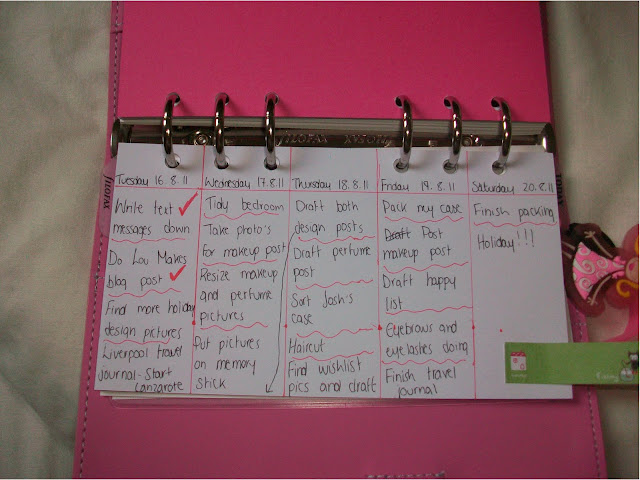 FILOFAX
Tuesday 16.8.11
Write text
messages down
Do Lou Makes
blog post
Find more holiday
design pictures
Liverpool travel
journal - Start
Lanzarote
Wednesday 17.8.11
Tidy bedroom
Take photo's
for makeup post
Resize makeup
and perfume
pictures
Put pictures
on memory
stick
Thursday 18.8.11
Draft both
design posts
Draft perfume
post
Sort Josh's
case
Haircut
Find wishlist
pics and draft
Friday 19.8.11
Pack my case
Draft Post
makeup post
Draft happy
list
Eyebrows and
eyelashes doing
Finish travel
journal
Saturday 20.8.11
Finish packing
Holiday!!!
filofax